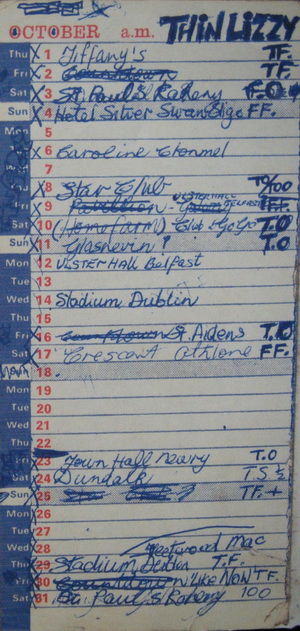 OCTOBER a.m. THIN LIZZY
Thu X 1 Tiffany's TF.
Fri X 2 TF.
Sat X 3 St. Paul's Raheny T.O
Sun X 4 Hotel Silver Swan Sligo FF.
Mon 5
6 Caroline Clonmel
Wed 7
X 8 Star Club TO/00
Fri X 9 ULSTER HALL BELFAST
Sat X 10 (Homefarm) Club AGoGo T.O
Sun X 11 Glasnevin ? T.O
Mon 12 ULSTER HALL Belfast
Tue 13
Wed 14 Stadium Dublin
Thu 15
Fri X 16 St. Aidens T.O
Sat X 17 Crescent Athlone FF.
18
Mon 19
Tue 20
Wed 21
Thu 22
Fri X 23 Town Hall Newry T.O
Sat X 24 Dundalk T.S ½
Sun X 25 TF. +
Mon 26
Tue 27
Wed 28 Fleetwood Mac
Thu X 29 Stadium Dublin T.F.
Fri X 30 "Like Now" TF.
Sat X 31 St. Paul's Raheny 100